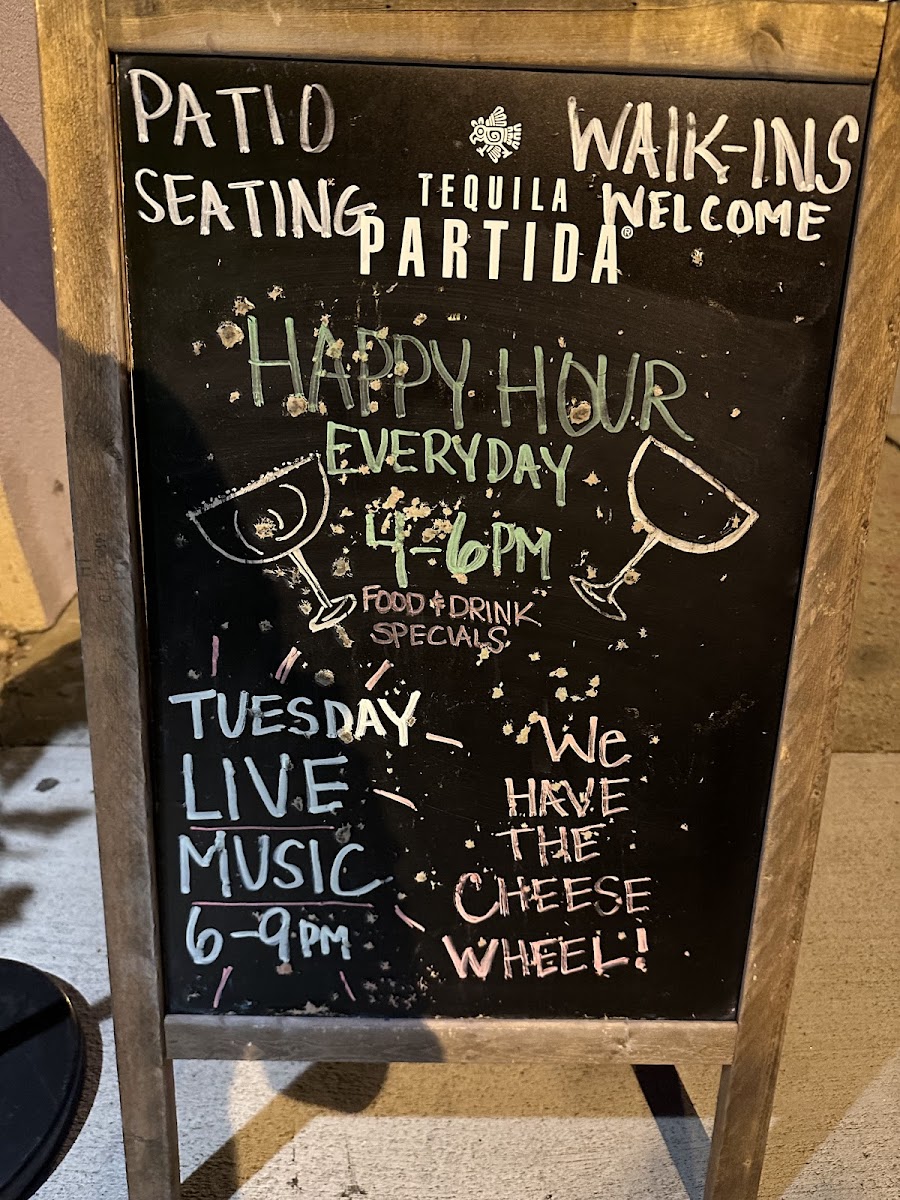 PATIO
SEATING
TEQUILA
PARTIDA®
WALK-INS
WELCOME
HAPPY HOUR
EVERYDAY
4-6PM
FOOD & DRINK
SPECIALS
TUESDAY
LIVE
MUSIC
6-9PM
We
HAVE
THE
CHEESE
WHEEL!